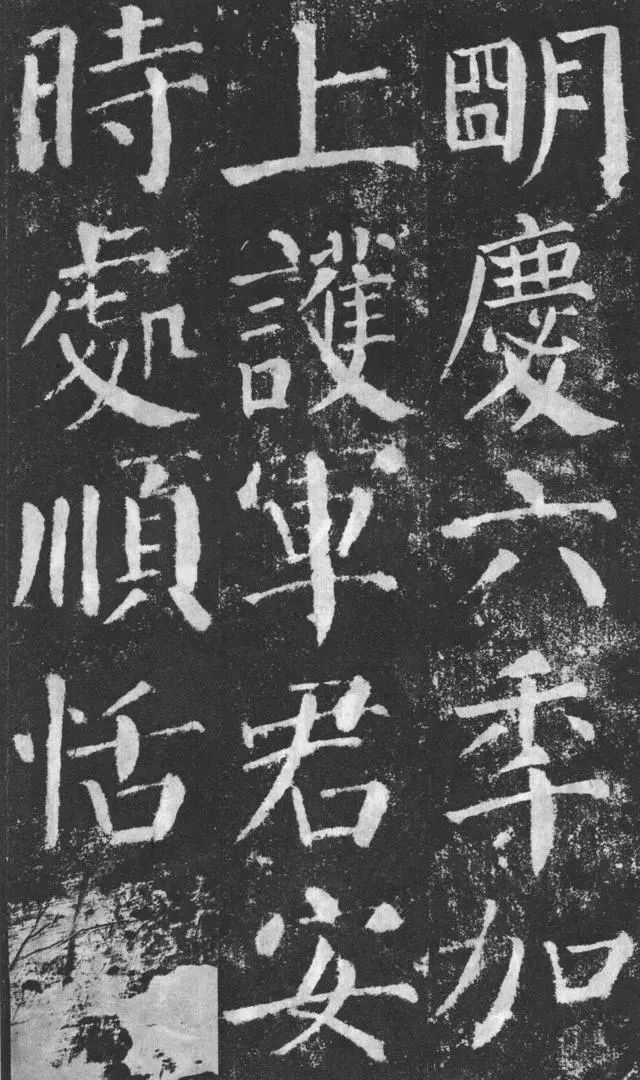 明慶六秊加
上護軍君安
時處順恬